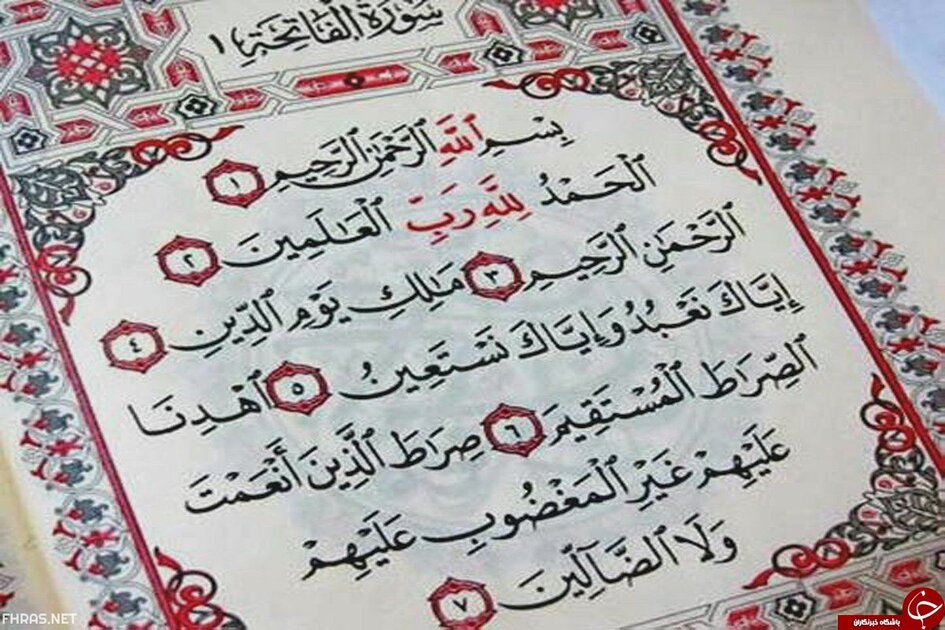 سُورَةُ الفَاتِحَةِ ١
بِسْمِ ٱللَّهِ ٱلرَّحْمَٰنِ ٱلرَّحِيمِ ١
ٱلْحَمْدُ لِلَّهِ رَبِّ ٱلْعَٰلَمِينَ ٢
ٱلرَّحْمَٰنِ ٱلرَّحِيمِ ٣ مَٰلِكِ يَوْمِ ٱلدِّينِ ٤
إِيَّاكَ نَعْبُدُ وَإِيَّاكَ نَسْتَعِينُ ٥ ٱهْدِنَا
ٱلصِّرَٰطَ ٱلْمُسْتَقِيمَ ٦ صِرَٰطَ ٱلَّذِينَ أَنْعَمْتَ
عَلَيْهِمْ غَيْرِ ٱلْمَغْضُوبِ عَلَيْهِمْ
وَلَا ٱلضَّآلِّينَ ٧
FHRAS.NET
باشگاه خبرنگاران